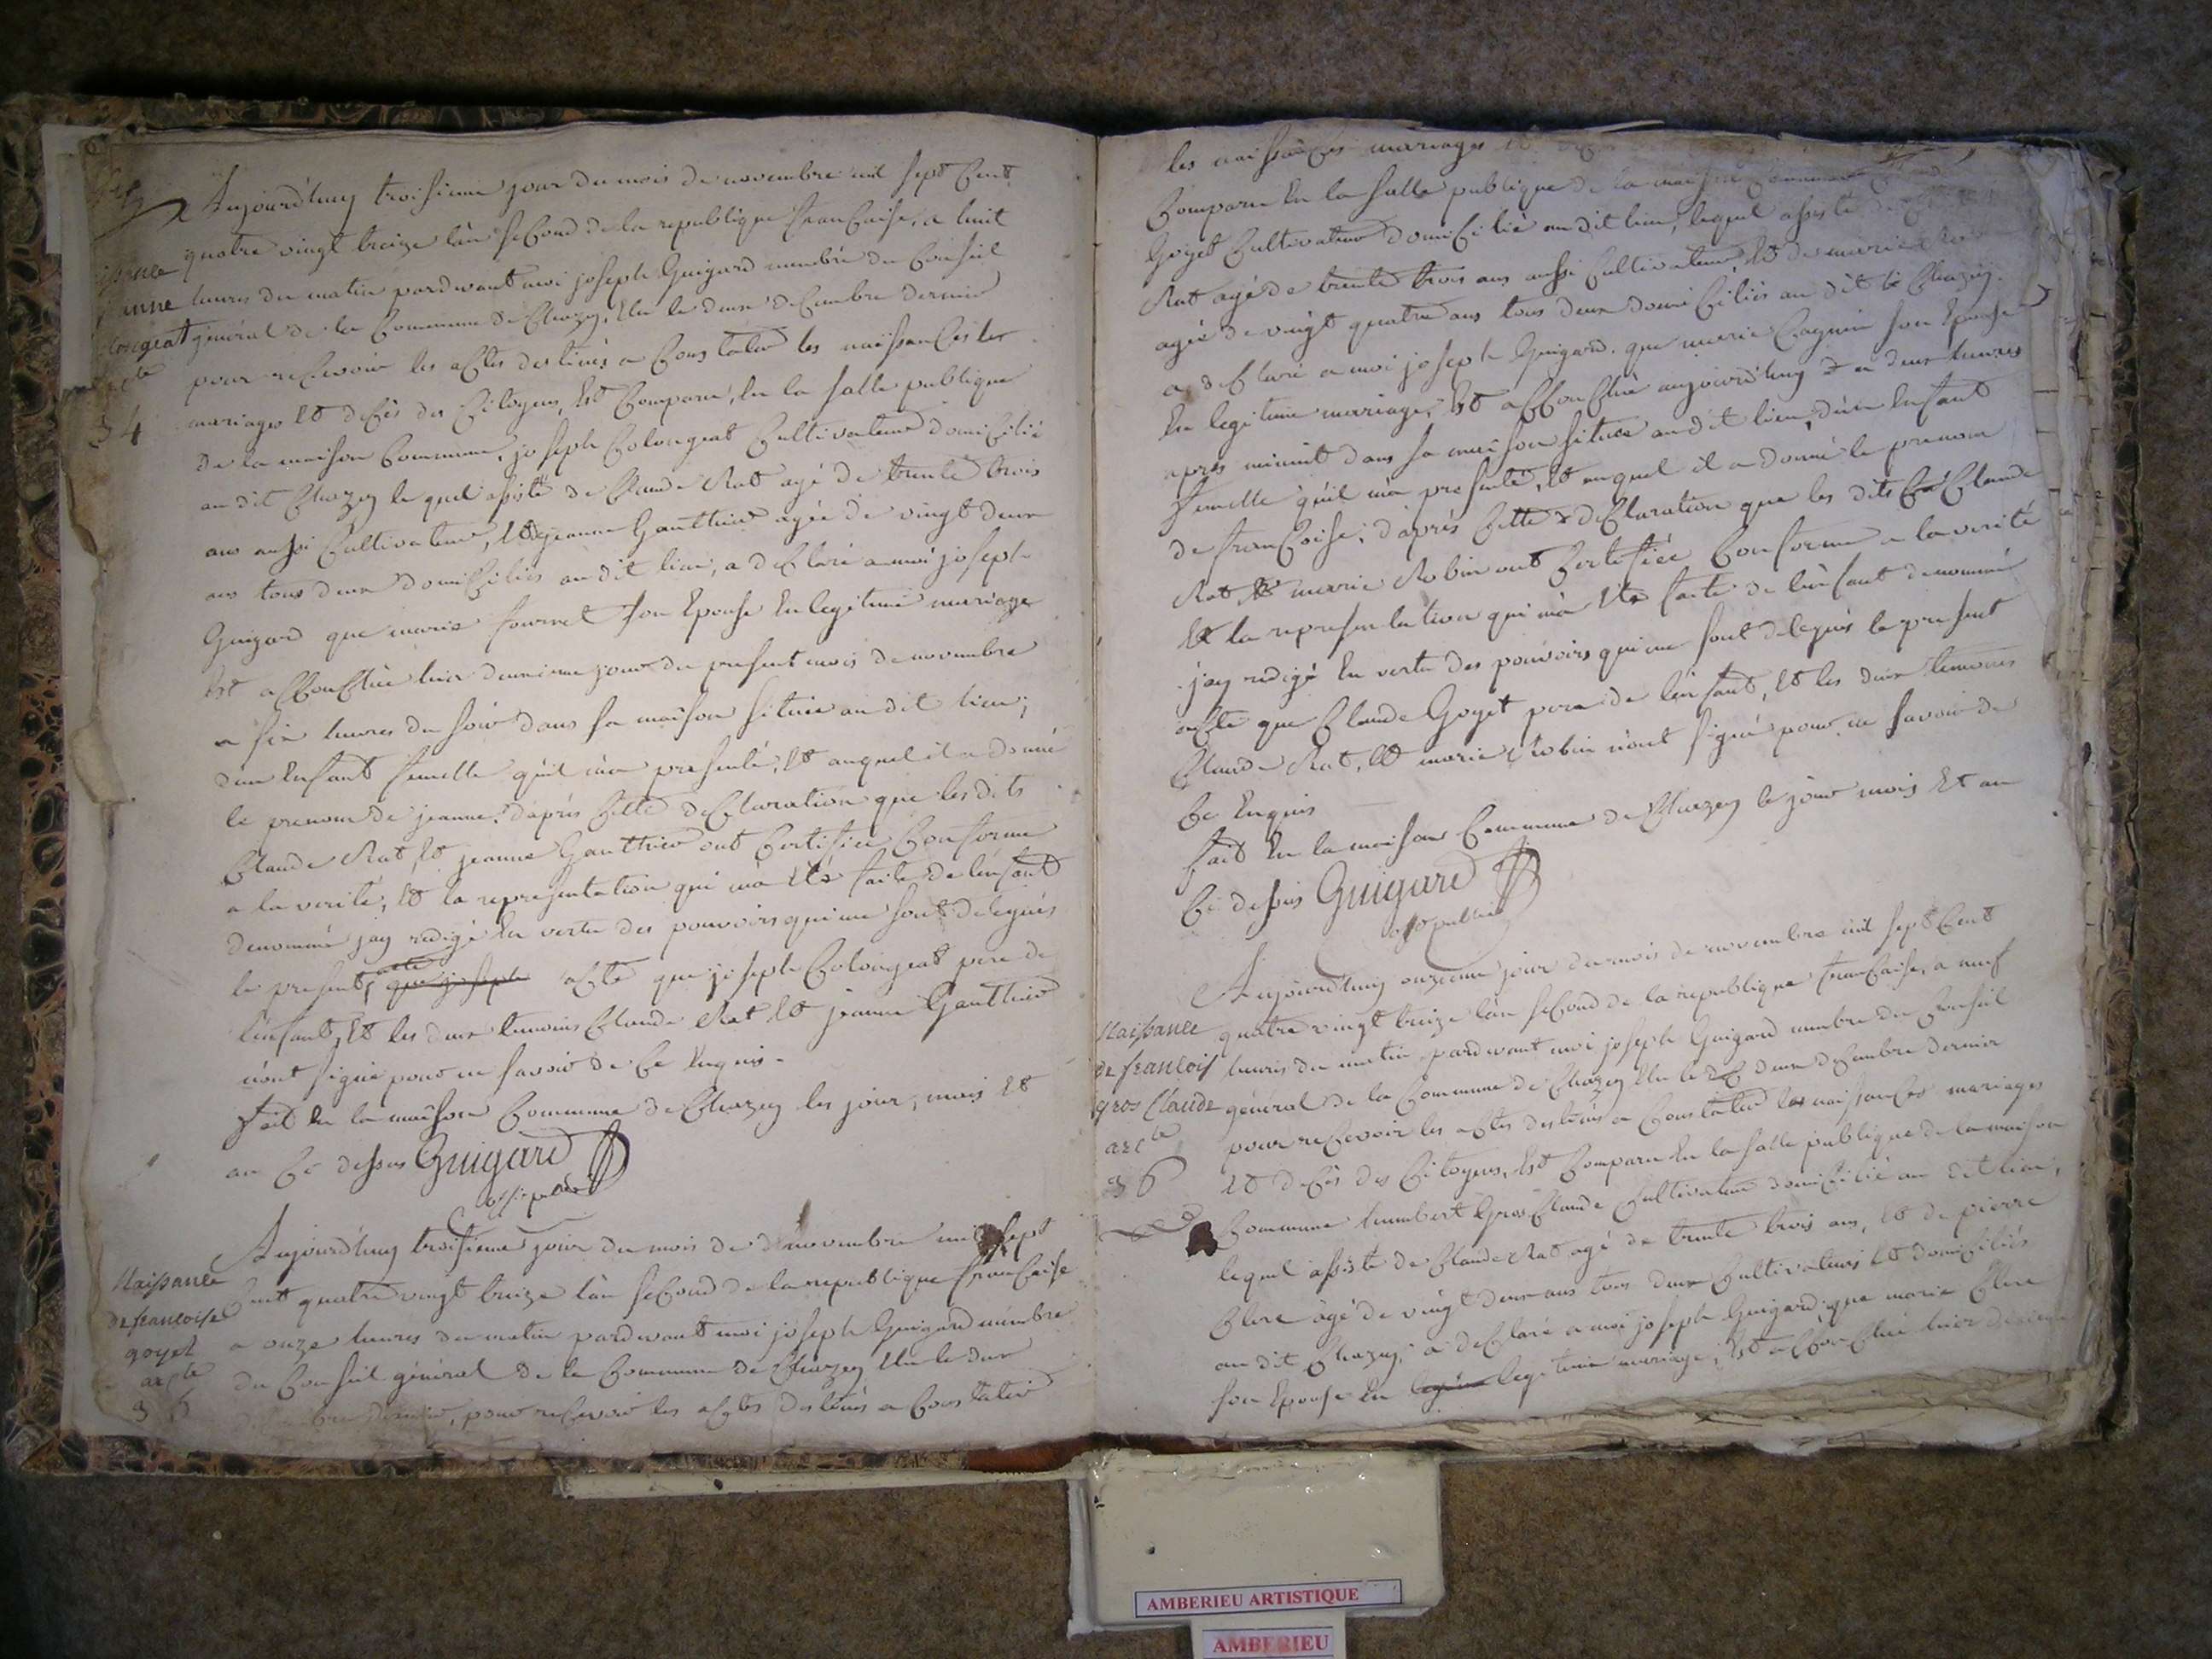 Aujourd'huy troisieme jour du mois de novembre mil sept Cent
quatre vingt treize l'an seCond de la republique franCaise, a huit
heures du matin pardevant moi joseph Guigard membre du Conseil
général de la Commune de Chazey, Elu le deux deCembre dernier
pour reCevoir les aCtes destinés a Constater les naissanCes les
mariages Et deCès des Citoyens, Est Comparu, En la salle publique
de la maison Commune, joseph Colongeat Cultivateur domiCilié
au dit Chazey le quel assisté de Claude Rat agé de trente trois
ans aussi Cultivateur, Et jeanne Gauthier agée de vingt deux
ans tous deux domiCiliés au dit lieu, a deClaré a moi joseph
Guigard que marie fournet son Epouse En legitime mariage
Est aCCouChée hier deuxieme jour du present mois de novembre
a six heures du soir dans sa maison située au dit lieu;
d'un Enfant femelle qu'il m'a presenté, Et auquel il a donné
le prenom de jeanne. d'après Cette deClaration que les dits
Claude Rat, Et jeanne Gauthier ont Certifiée Conforme
a la verité, Et la representation qui m'a Eté faite de l'enfant
denommé jay redigé En vertu des pouvoirs qui me sont delegués
le present, acte que joseph aCte que joseph Colongeat pere de
l'enfant, Et les deux temoins Claude Rat Et jeanne Gauthier
n'ont signé pour ne savoir de Ce Enquis -
fait En la maison Commune de Chazey les jour, mois Et
an Ci dessus Guigard
off. public
jeanne
Colongeat
34
Aujourd'huy troisieme jour du mois de novembre mil sept
Cent quatre vingt treize l'an seCond de la republique franCaise
a onze heures du matin pardevant moi joseph Guigard membre
du Conseil général de la Commune de Chazey Elu le deux
deCembre dernier, pour reCevoir les aCtes destinés a Constater
Naissance
de françoise
goyet
arcle
les naissanCes mariages Et
Comparu En la salle publique de la maison Commune
Goyet Cultivateur domiCilié au dit lieu, lequel assisté de
Rat agé de trente trois ans aussi Cultivateur Et de marie
agée de vingt quatre ans tous deux domiCiliés au dit Chazey.
a deClaré a moi joseph Guigard. que marie son Epouse
En legitime mariage, Est aCCouChée aujourd'huy a deux heures
après minuit dans sa maison située au dit lieu, d'un Enfant
femelle qu'il m'a presenté, Et auquel il a donné le prenom
de franCoise; d'après Cette deClaration que les dits Claude
Rat Et marie Robin ont Certifiée Conforme a la verité
Et la representation qui m'a Eté faite de l'enfant denommé
jay redigé En vertu des pouvoirs qui me sont delegués le present
aCte que Claude Goyet pere de l'enfant, Et les deux temoins
Claude Rat, Et marie Robin n'ont signé pour ne savoir de
Ce Enquis
fait En la maison Commune de Chazey le jour mois Et an
Ci dessus Guigard
off. public
Aujourd'huy onzieme jour du mois de novembre mil sept Cent
quatre vingt treize l'an seCond de la republique franCaise, a neuf
heures du matin pardevant moi joseph Guigard membre du Conseil
général de la Commune de Chazey Elu le deux deCembre dernier
pour reCevoir les aCtes destinés a Constater les naissanCes mariages
Et deCès des Citoyens, Est Comparu En la salle publique de la maison
Commune humbert Gros Claude Cultivateur domiCilié au dit lieu,
lequel assisté de Claude Rat agé de trente trois ans, Et de pierre
Clere agé de vingt deux ans tous deux Cultivateurs Et domiCiliés
au dit Chazey, a deClaré a moi joseph Guigard, que marie Clere
son Epouse En legitime mariage, Est aCCouChée hier
Naissance
de françois
gros Claude
arcle
36
AMBERIEU ARTISTIQUE
AMBERIEU